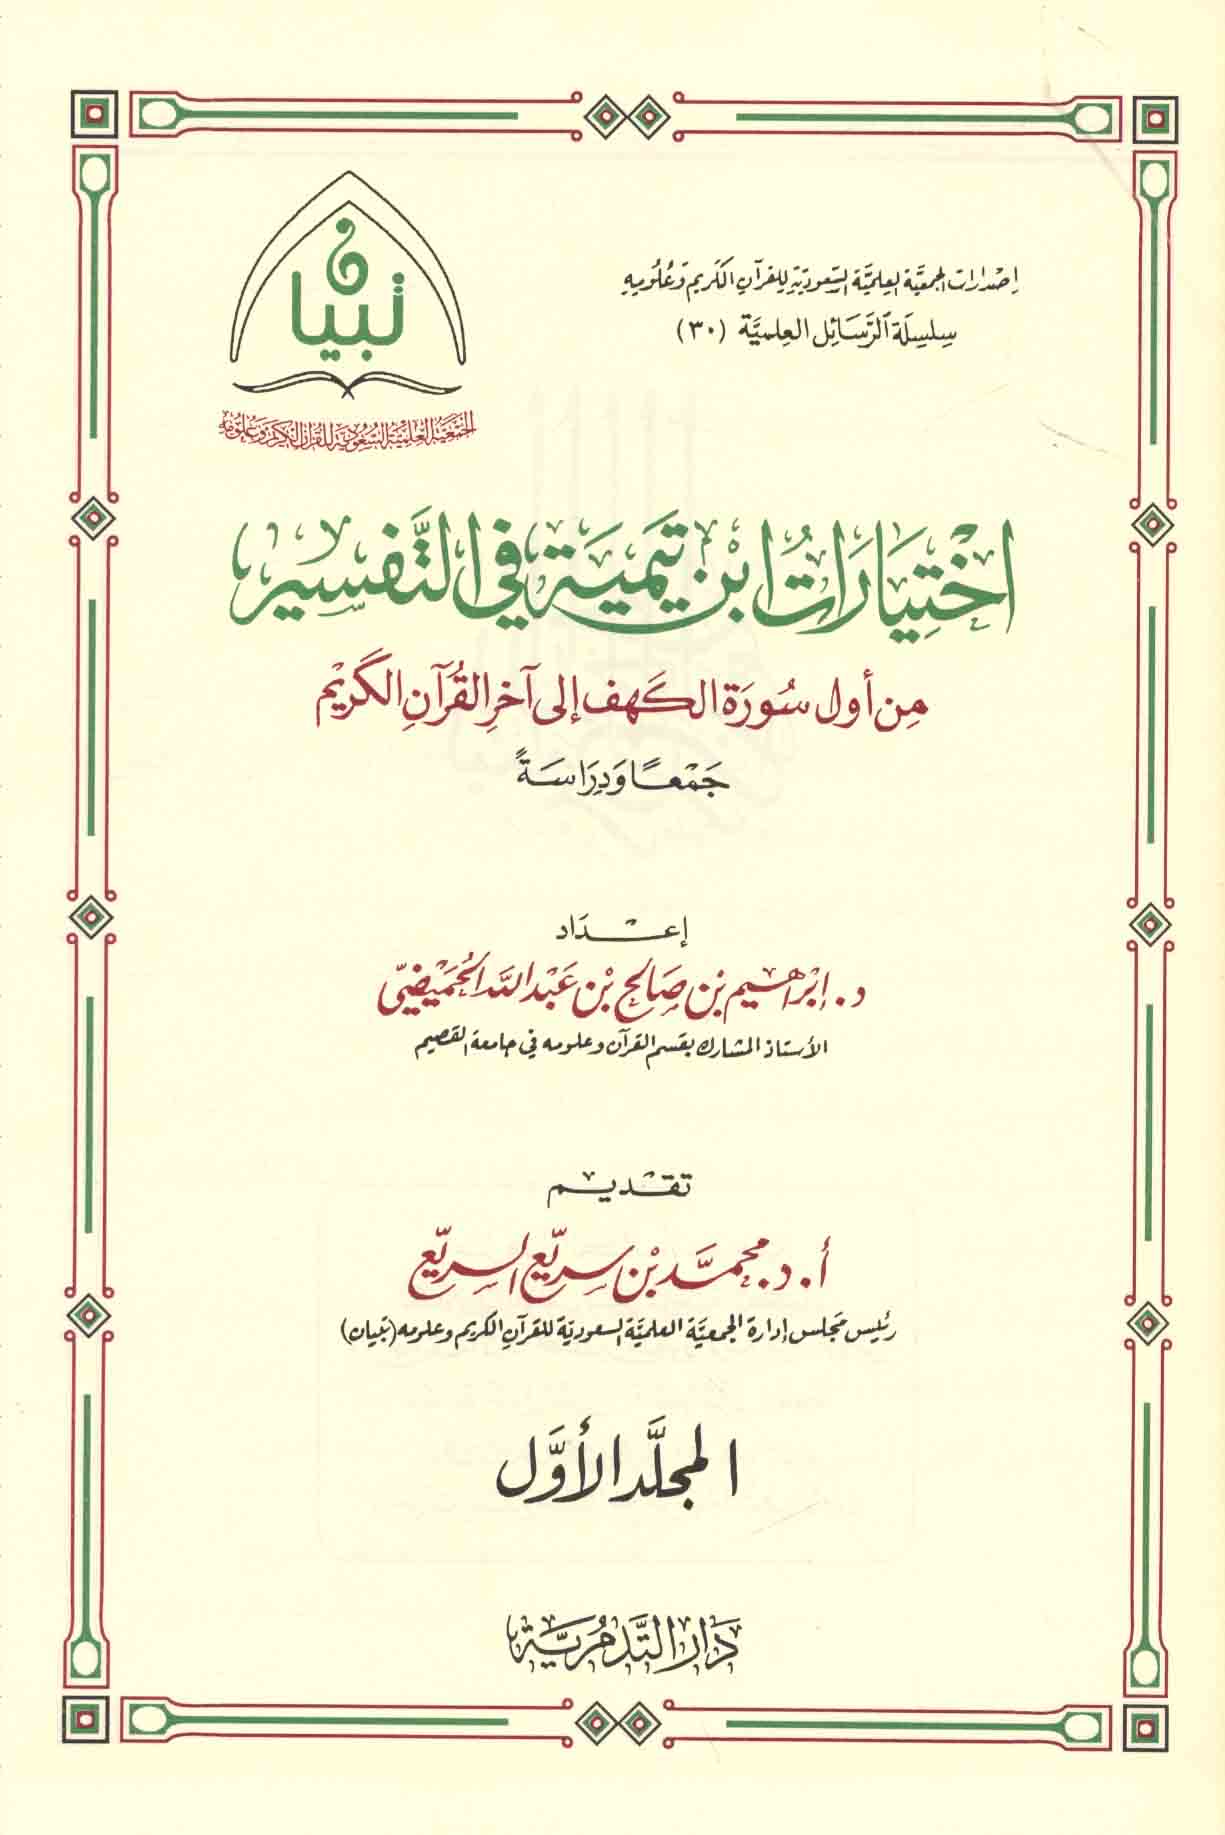 إصدارات الجمعية العلمية السعودية للقرآن الكريم وعلومه
سلسلة الرسائل العلمية (٣٠)
تبيان
الجمعية العلمية السعودية للقرآن الكريم وعلومه
اختيارات ابن تيمية في التفسير
من أول سورة الكهف إلى آخر القرآن الكريم
جمعًا ودراسةً
إعداد
د. إبراهيم بن صالح بن عبد الله الحميضي
الأستاذ المشارك بقسم القرآن وعلومه في جامعة القصيم
تقديم
أ. د. محمد بن سريّع السريّع
رئيس مجلس إدارة الجمعيّة العلميّة السعوديّة للقرآن الكريم وعلومه (تبيان)
المجلَّد الأوَّل
دار التَّدمُريَّة